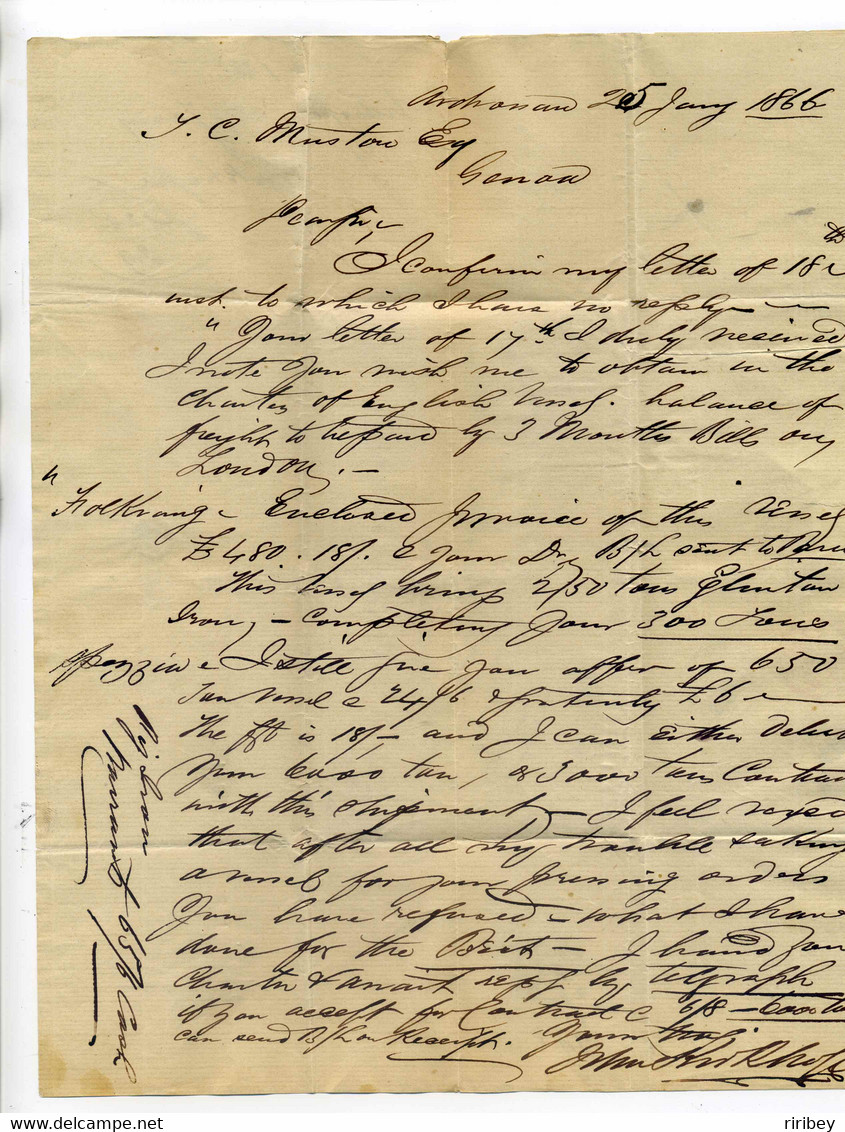 Ardrossan 25 Jany 1866
T. C. Muston Esq
Genoa
Dear Sir,
I confirm my letter of 18th
inst. to which I have no reply –
" Your letter of 17th I duly received
I note you wish me to obtain in the
Charter of English Vessel. balance of
freight to be paid by 3 Months Bills on
London, –
" Enclosed Invoice of this Vessel
£480. 18/. @ your Dr, B/L sent to
This Vessel brings 2/50 tons Glinton
Iron, – completing your 300 Tones
Spezzia I still give you offer of 650
ton Vessel @ 24/6 & gratuity £6 –
the fft is 18/– and I can either
you 6000 ton, or 3000 tons
with this shipment – I feel vexed
that after all my trouble & taking
a vessel for your pressing orders
You have refused – what I have
done for the – I hand you
Charter & await reply by telegraph
if you accept for Contract @ 6/8 – 6000
can send B/L on Receipt. Yours truly
John
Pig Iron
Warrants 65/6 Cash
riribey